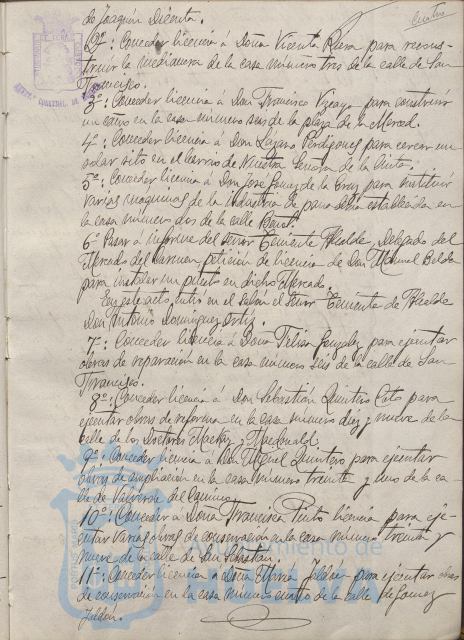 Cuatro
de Joaquín Dicenta.
2º: Conceder licencia á Doña Vicenta Riera para recons-
truir la medianera de la casa número tres de la calle de San
Francisco.
3º: Conceder licencia á Don Francisco Vizcaya para construir
un caño en la casa número seis de la plaza de la Merced.
4º: Conceder licencia á Don Lázaro Perdigones para cerrar un
solar sito en el barrio de Nuestra Señora de la Cinta.
5º: Conceder licencia á Don José Gómez de la Cruz para instituir
varias maquinas de la industria de panadería establecida en
la casa número dos de la calle Benot.
6º Pasar á informe del Señor Teniente Alcalde, Delegado del
Mercado del Carmen, petición de licencia de Don Manuel Belda
para instalar un puesto en dicho Mercado.
En este acto, entró en el salón el Señor Teniente de Alcalde
Don Antonio Domínguez Ortíz.
7º: Conceder licencia á Don Felix González para ejecutar
obras de reparación en la casa número seis de la calle de San
Francisco.
8º: Conceder licencia á Don Sebastián Quintero Coto para
ejecutar obras de reforma en la casa número diez y nueve de la
calle de los Doctores Mackay y Macdonald.
9º: Conceder licencia á Don Miguel Quintero para ejecutar
obras de ampliación en la casa número treinta y uno de la ca-
lle de Valverde del Camino.
10º: Conceder á Doña Francisca Pinto licencia para eje-
cutar varias obras de conservación en la casa número treinta y
nueve de la calle de San Sebastián.
11º: Conceder licencia á Doña María Jaldón para ejecutar obras
de conservación en la casa número cuatro de la calle de Gómez
Jaldón.
Ayuntamiento de
HUELVA